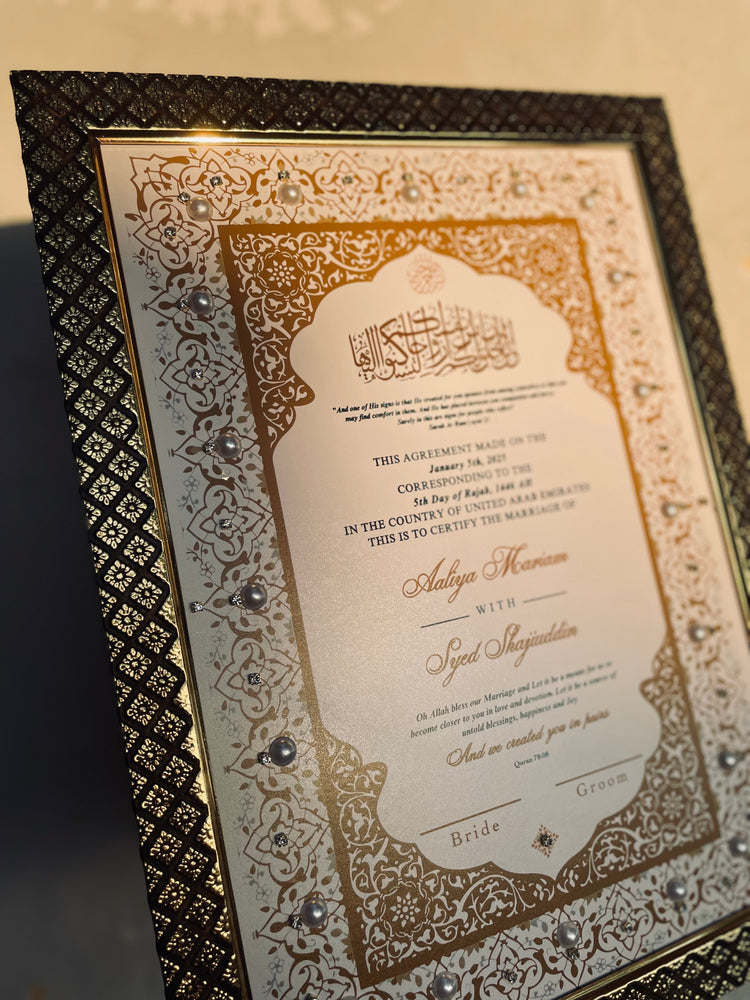 "And one of His signs is that He created for you spouses from among yourselves so that you
may find comfort in them. And He has placed between you compassion and mercy.
Surely in this are signs for people who reflect"
THIS AGREEMENT MADE ON THE
January 5th, 2025
CORRESPONDING TO THE
5th Day of Rajab, 1446 AH
IN THE COUNTRY OF UNITED ARAB EMIRATES
THIS IS TO CERTIFY THE MARRIAGE OF
Aaliya Mariam
WITH
Syed Shajiuddin
Oh Allah bless our Marriage and Let it be a means for us to
become closer to you in love and devotion. Let it be a source of
untold blessings, happiness and Joy
And we created you in pairs
Quran 78:08
Bride Groom